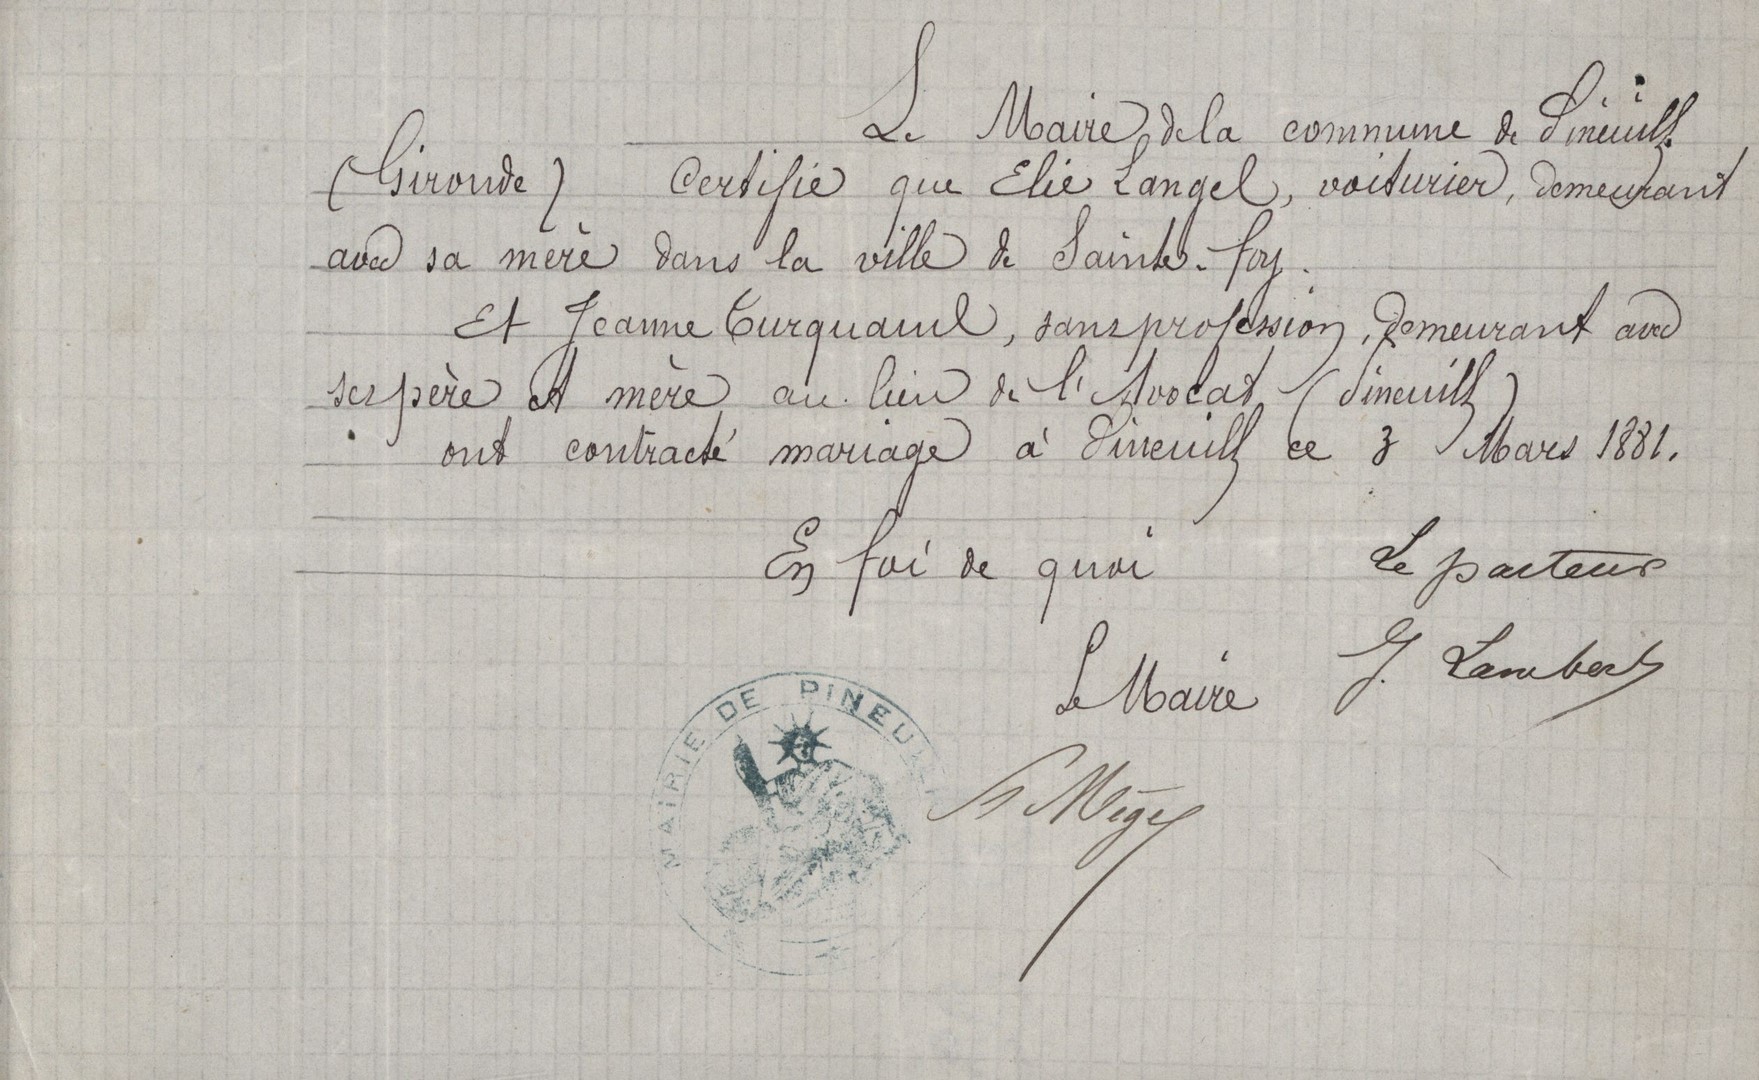 Le Maire de la commune de Pineuilh
(Gironde) Certifie que Elie Langel, voiturier, demeurant
avec sa mère dans la ville de Sainte-foy.
Et Jeanne Turquaud, sans profession, demeurant avec
ses père et mère au lieu de l'Avocat (Pineuilh)
ont contracté mariage à Pineuilh ce 3 Mars 1881.
En foi de quoi
Le pasteur
Le Maire
J. Lambert
MAIRIE DE PINEU
Mège